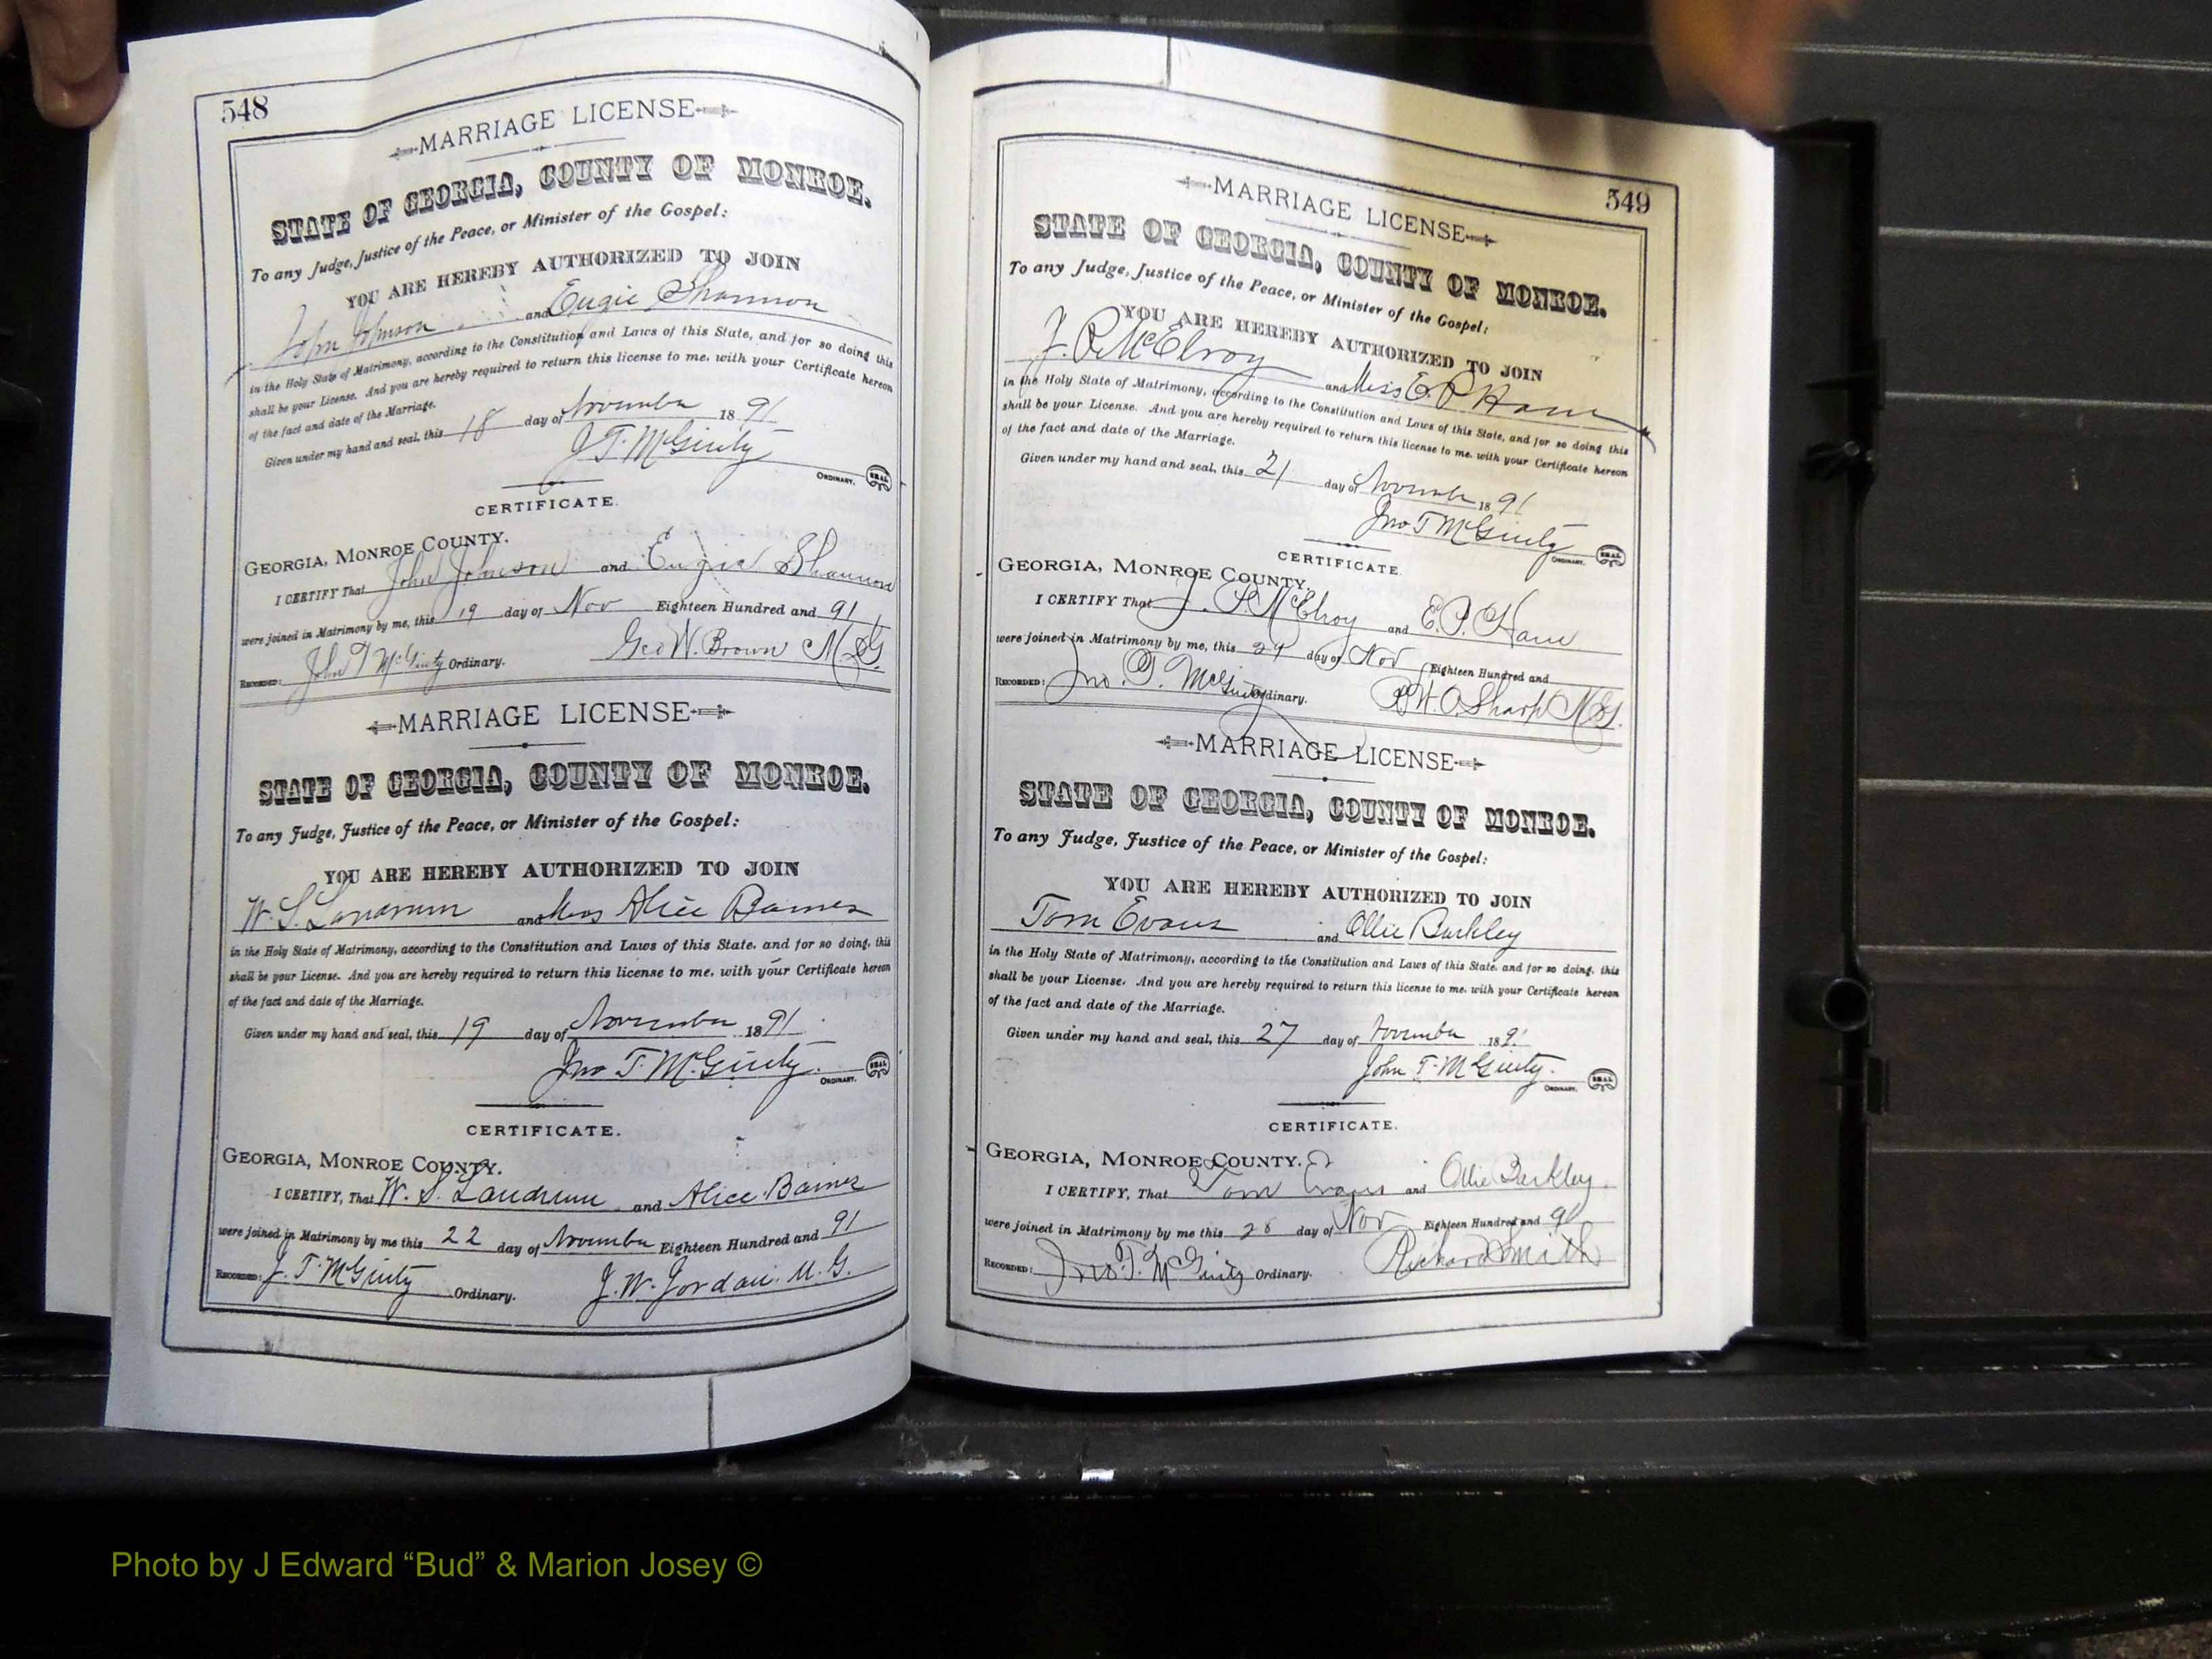 548
MARRIAGE LICENSE
STATE OF GEORGIA, COUNTY OF MONROE.
To any Judge, Justice of the Peace, or Minister of the Gospel:
YOU ARE HEREBY AUTHORIZED TO JOIN
John Johnson and Eugie Shannon
in the Holy State of Matrimony, according to the Constitution and Laws of this State, and for so doing this
shall be your License. And you are hereby required to return this license to me, with your Certificate hereon
of the fact and date of the Marriage.
Given under my hand and seal, this 18 day of November 1891
J. T. McGinty
ORDINARY. SEAL
CERTIFICATE.
GEORGIA, MONROE COUNTY.
I CERTIFY That John Johnson and Eugie Shannon
were joined in Matrimony by me, this 19 day of Nov Eighteen Hundred and 91
Geo W. Brown M.G.
RECORDED: John T McGinty Ordinary.
MARRIAGE LICENSE
STATE OF GEORGIA, COUNTY OF MONROE.
To any Judge, Justice of the Peace, or Minister of the Gospel:
YOU ARE HEREBY AUTHORIZED TO JOIN
W. S. Landrum and Miss Alice Barnes
in the Holy State of Matrimony, according to the Constitution and Laws of this State, and for so doing, this
shall be your License. And you are hereby required to return this license to me, with your Certificate hereon
of the fact and date of the Marriage.
Given under my hand and seal, this 19 day of November 1891
Jno T. McGinty.
ORDINARY. SEAL
CERTIFICATE.
GEORGIA, MONROE COUNTY.
I CERTIFY, That W. S. Landrum and Alice Barnes
were joined in Matrimony by me this 22 day of November Eighteen Hundred and 91
RECORDED: J. T. McGinty Ordinary. J. W. Jordan. M. G.
549
MARRIAGE LICENSE
STATE OF GEORGIA, COUNTY OF MONROE.
To any Judge, Justice of the Peace, or Minister of the Gospel:
YOU ARE HEREBY AUTHORIZED TO JOIN
McElroy and Miss E. P. Ham
in the Holy State of Matrimony, according to the Constitution and Laws of this State, and for so doing this
shall be your License. And you are hereby required to return this license to me, with your Certificate hereon
of the fact and date of the Marriage.
Given under my hand and seal, this 21 day of November 1891
Jno T McGinty
ORDINARY. SEAL
CERTIFICATE.
GEORGIA, MONROE COUNTY.
I CERTIFY That McElroy and E. P. Ham
were joined in Matrimony by me, this day of Nov Eighteen Hundred and
RECORDED: Jno. T. McGinty Ordinary. Sharp M.G.
MARRIAGE LICENSE
STATE OF GEORGIA, COUNTY OF MONROE.
To any Judge, Justice of the Peace, or Minister of the Gospel:
YOU ARE HEREBY AUTHORIZED TO JOIN
Tom Evans and Ollie Barkley
in the Holy State of Matrimony, according to the Constitution and Laws of this State, and for so doing, this
shall be your License. And you are hereby required to return this license to me, with your Certificate hereon
of the fact and date of the Marriage.
Given under my hand and seal, this 27 day of November 189
John T. McGinty.
ORDINARY. SEAL
CERTIFICATE.
GEORGIA, MONROE COUNTY.
I CERTIFY, That Tom Evans and Ollie Barkley.
were joined in Matrimony by me this 28 day of Nov Eighteen Hundred and 91
RECORDED: Jno. T. McGinty Ordinary. Richard Smith
Photo by J Edward “Bud” & Marion Josey ©